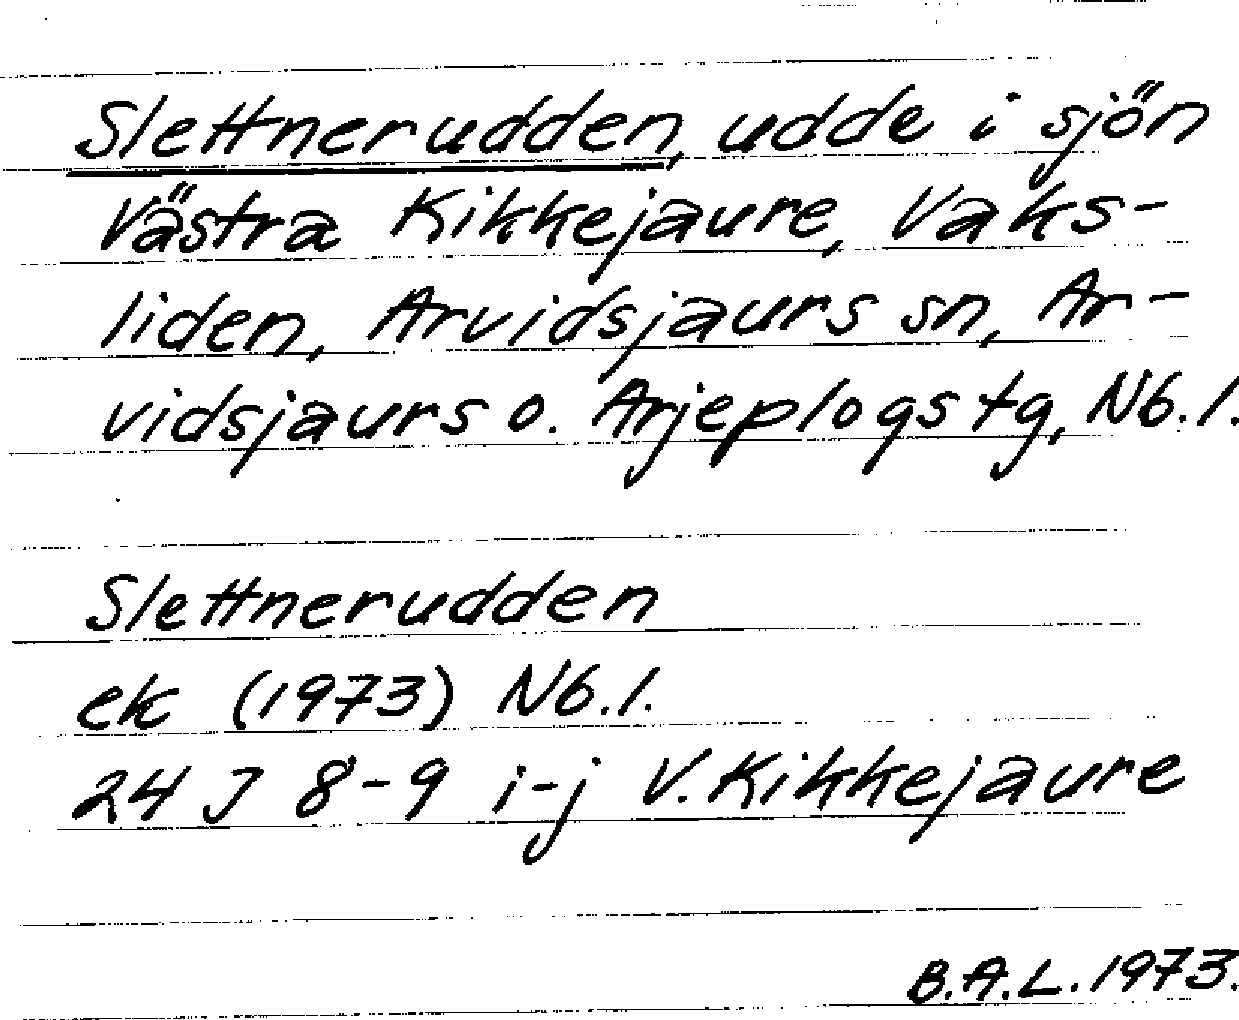 Slettnerudden, udde i sjön
Västra Kikkejaure, Vaks-
liden, Arvidsjaurs sn, Ar-
vidsjaurs o. Arjeplogs tg, Nb.l.
Slettnerudden
ek (1973) Nb.l.
24 J 8-9 i-j V. Kikkejaure
B.A.L. 1973.